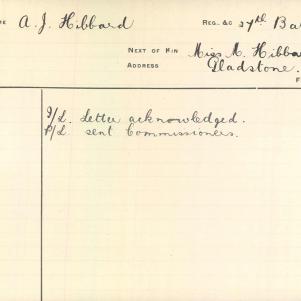 ME A. J. Hibbard REG. &C 27th Ba
NEXT OF KIN Miss M. Hibba
ADDRESS Gladstone.
F
I/L. Letter acknowledged.
P/L. sent Commissioners.